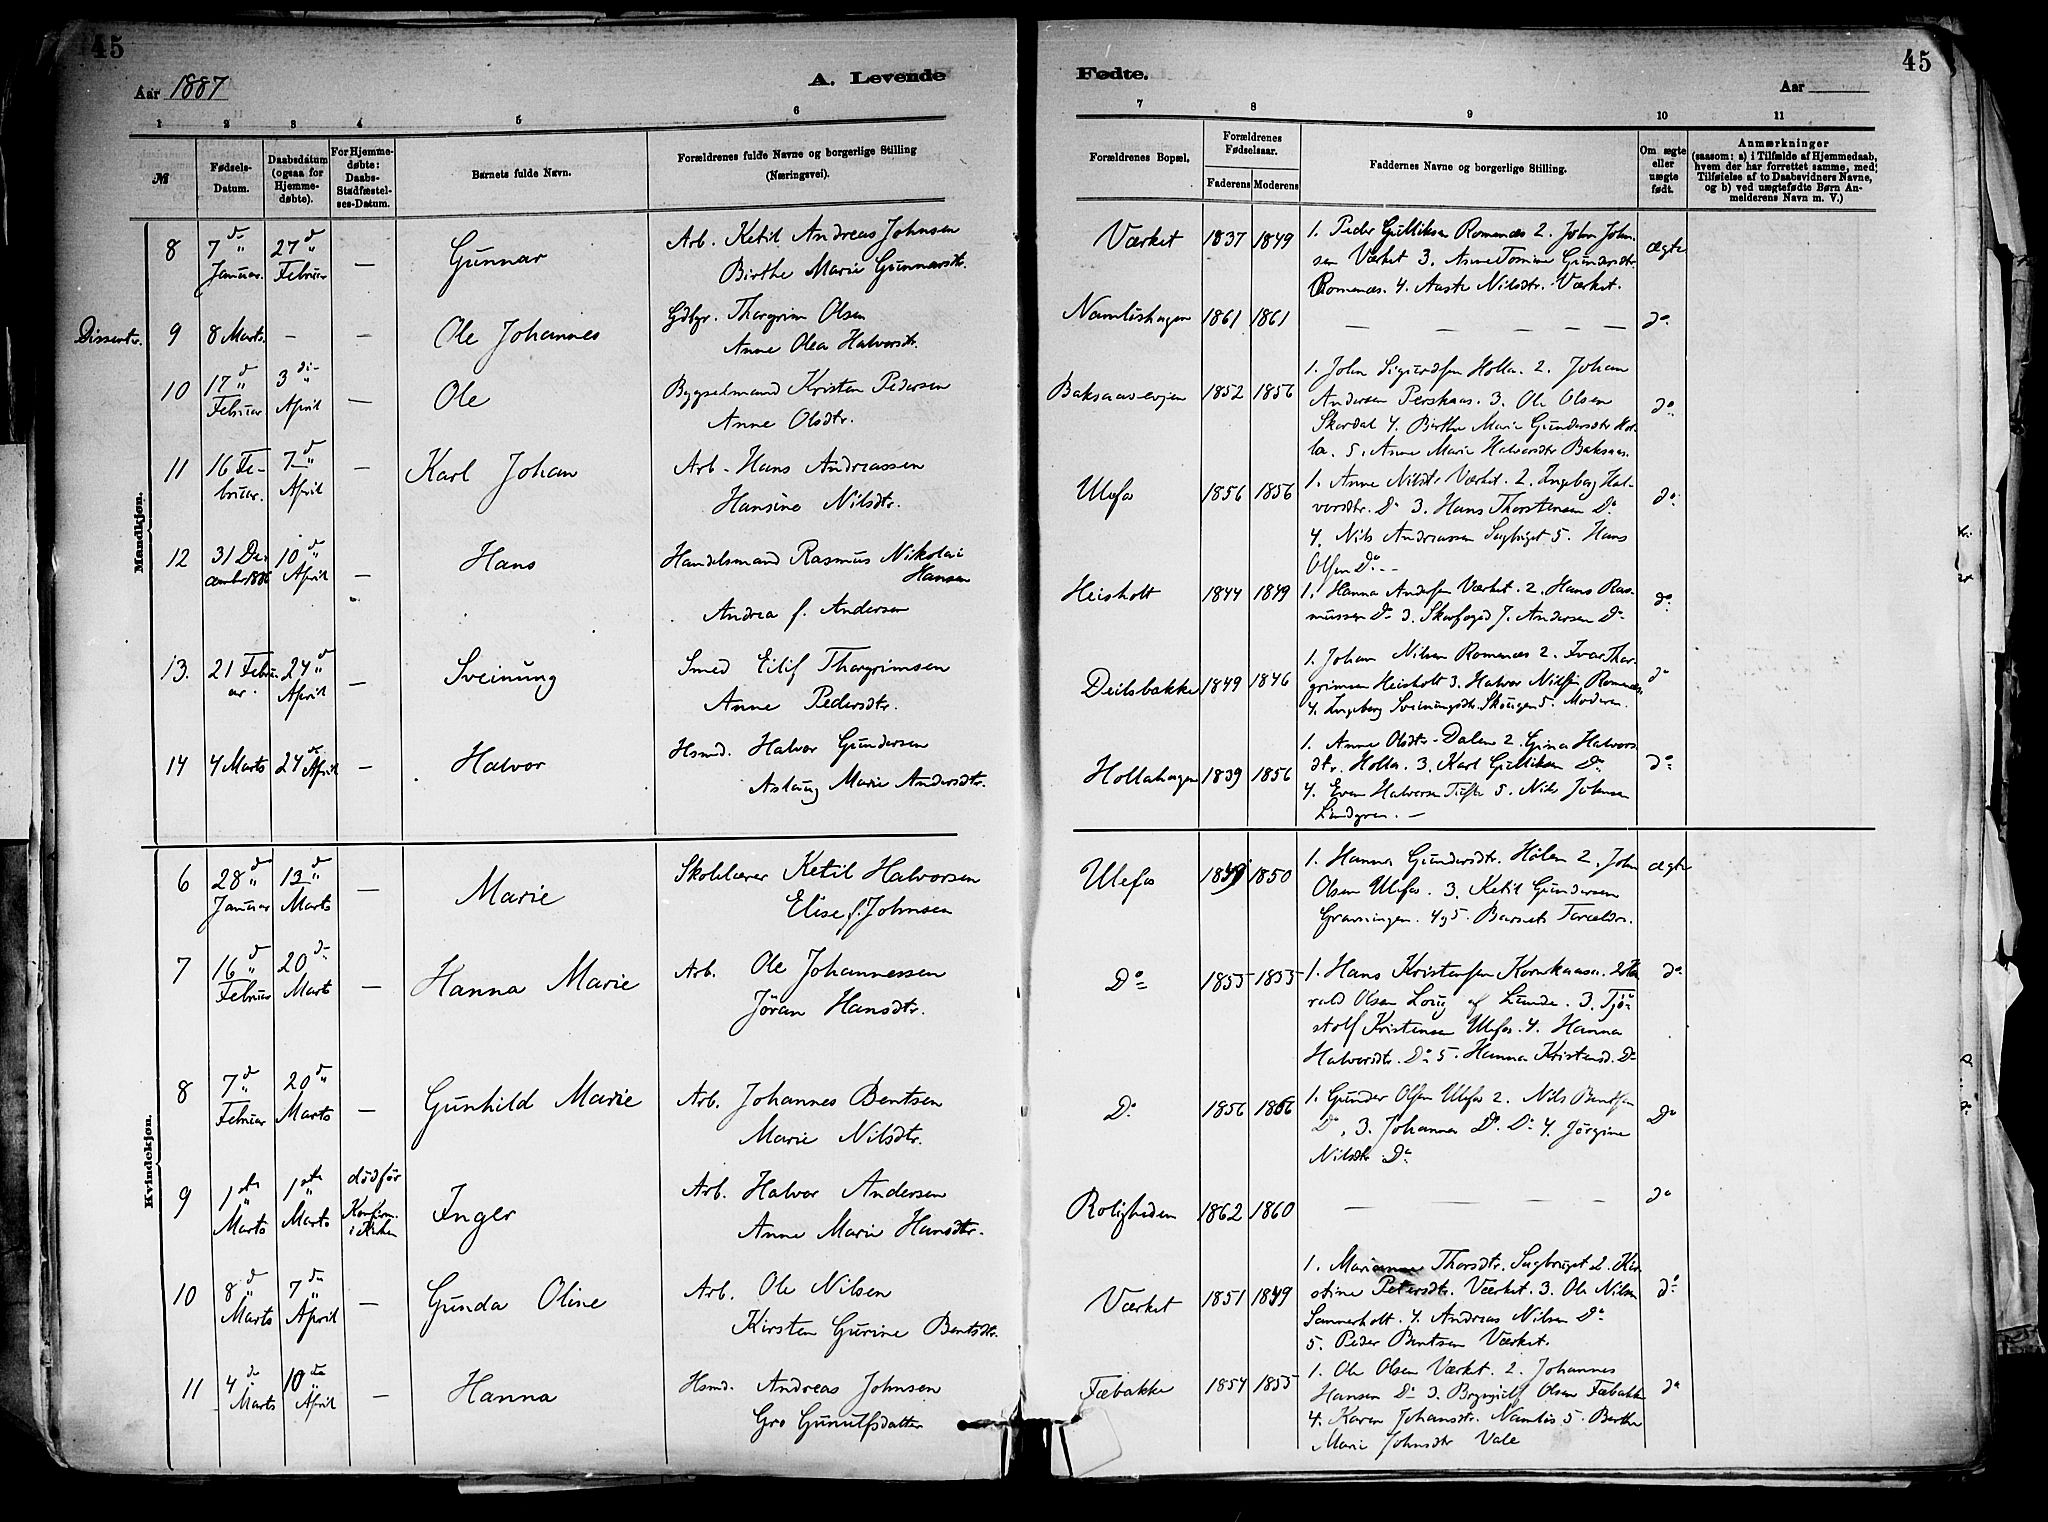 45
Aar 1887
A. Levende
1 2 3 4 5 6
№
Fødsels-Datum.
Daabsdatum (ogsaa for Hjemmedøbte).
For Hjemmedøbte: Daabs-Stadfæstelses-Datum.
Barnets fulde Navn.
Forældrenes fulde Navne og borgerlige Stilling
(Næringsvei).
Mandkjøn.
8 7de Januar 27de Februar — Gunnar Arb. Ketil Andreas Johnsen
Birthe Marie Gunnarsdtr.
Dissentr. 9 8 Marts — — Ole Johannes Gdbgr. Thorgrim Olsen
Anne Olea Halvorsdtr.
10 17de Februar 3die April — Ole Bygselmand Kristen Pedersen
Anne Olsdtr.
11 16 Februar. 7de April — Karl Johan Arb. Hans Andreassen
Hansine Nilsdtr.
12 31 December 1886 10de April — Hans Handelsmand Rasmus Nikolai
Hansen
Andrea f. Andersen
13. 21 Februar. 24de April — Sveinung Smed Eilif Thorgrimsen
Anne Pedersdtr.
14 4 Marts 24de April — Halvor Hsmd. Halvor Gundersen
Aslaug Marie Andersdtr.
Kvindekjøn.
6 28de Januar 13de Marts — Marie Skolelærer Ketil Halvorsen
Elise f. Johnsen
7 16de Februar 20de Marts — Hanna Marie Arb. Ole Johannessen
Jöran Hansdtr.
8 7de Februar 20de Marts — Gunhild Marie Arb. Johannes Bentsen
Marie Nilsdtr.
9 1ste Marts 1ste Marts död før Konfirm. i Kirken Inger Arb. Halvor Andersen
Anne Marie Hansdtr.
10 8de Marts 7de April — Gunda Oline Arb. Ole Nilsen
Kirsten Gurine Bentsdtr.
11 4de Marts 10de April — Hanna Hsmd. Andreas Johnsen
Gro Gunulfsdatter
Fødte.
45
Aar
7 8 9 10 11
Forældrenes Bopæl.
Forældrenes Fødselsaar.
Faderens Moderens
Faddernes Navne og borgerlige Stilling.
Om ægte eller uægte født.
Anmærkninger
(saasom: a) i Tilfælde af Hjemmedaab,
hvem der har forrettet samme, med
Tilføielse af to Daabsvidners Navne,
og b) ved uægtefødte Børn Anmelderens Navn m. V.)
Værket 1837 1849 1. Peder Gulliksen Romenæs 2. John John-
sen Værket 3. Anne Tomine Gundersdtr.
Romenæs. 4. Aaste Nilsdtr. Værket. ægte
Namløshagen 1861 1861 — — — — — — do.
Baksaasveien 1852 1856 1. John Sigurdsen Holla. 2. Johan
Andersen Pershaas. 3. Ole Olsen
Skordal 4. Birthe Marie Gundersdtr Hol-
la. 5. Anne Marie Halvorsdtr Baksaas. do.
Ulefos 1856 1856 1. Anne Nilsdtr Værket. 2. Ingeborg Hal-
vorsdtr. Do 3. Hans Thorstensen Do
4. Nils Andreassen Sagbruget 5. Hans
Olsen Do. do.
Heisholt 1844 1849 1. Hanna Andersen Værket. 2. Hans Ras-
mussen Do 3. Skovfoged J. Andersen Do do.
Deilsbakke 1849 1846 1. Johan Nilsen Romenæs 2. Ivar Thor-
grimsen Heisholt 3. Halvor Nilsen Romenæs
4. Ingeborg Sveinungsdtr. Skougen 5. Moderen. do
Hollahagen 1839 1856 1. Anne Olsdtr. Dalen 2. Gina Halvors-
dtr. Holla. 3. Karl Gulliksen Do
4. Even Halvorsen Tufte 5. Nils Johnsen
Lindgren. — do.
Ulefos 1849 1850 1. Hanna Gundersdtr. Holen 2. John
Olsen Ulefos. 3. Ketil Gundersen
Gravningen. 4 og 5. Barnets Forældre. ægte
Do 1855 1855 1. Hans Kristensen Kornkaasa. 2. Ha-
rald Olsen Loug af Lunde. 3. Tjö-
stolf Kristensen Ulefos. 4. Hanna
Halvorsdtr. Do 5. Hanna Kristensd. Do do
Do. 1856 1866 1. Gunder Olsen Ulefos 2. Nils Bentsen
Do, 3. Johanna Do. Do 4. Jørgine
Nilsdtr. Do Do
Roligheden 1862 1860 — — — — do
Værket 1851 1849 1. Marianne Thorsdtr. Sagbruget 2. Kir-
stine Petersdtr. Værket. 3. Ole Nilsen
Sannerholt. 4. Andreas Nilsen Do
5. Peder Bentsen Værket. do.
Fæbakke 1854 1855 1. Ole Olsen Værket. 2. Johannes
Hansen Do 3. Brynjulf Olsen Fæbakke
4. Karen Johansdtr. Namløs 5. Berthe
Marie Johnsdtr Vale do